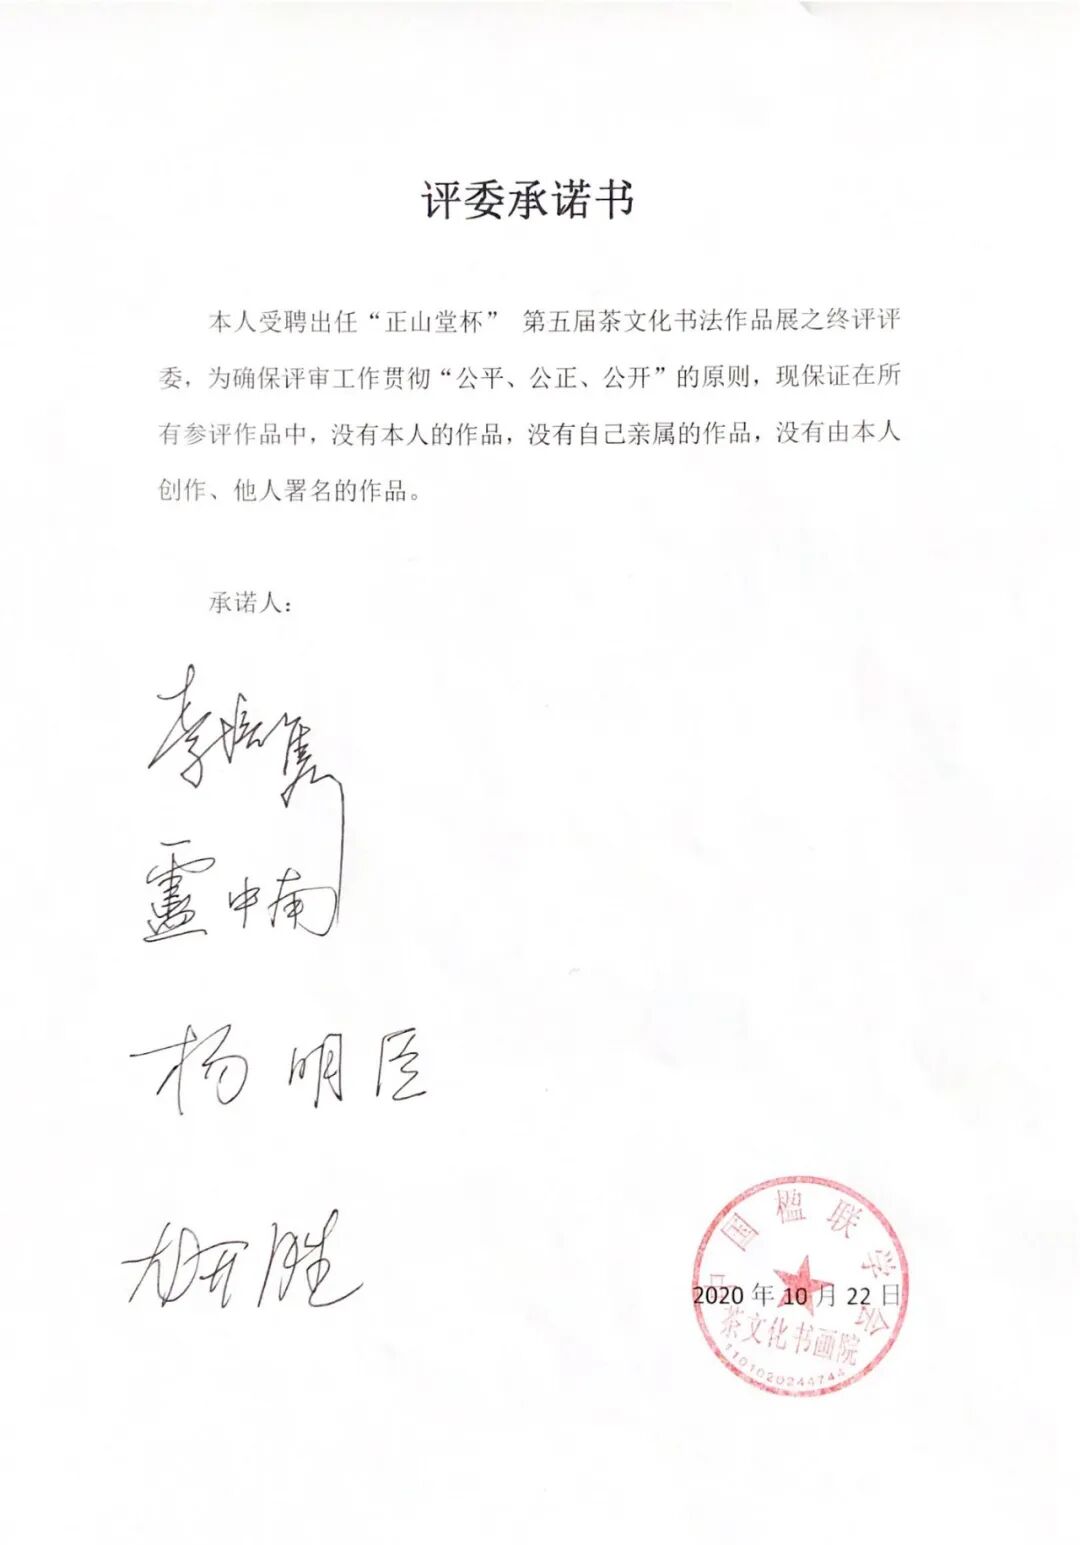 评委承诺书
本人受聘出任“正山堂杯” 第五届茶文化书法作品展之终评评
委，为确保评审工作贯彻“公平、公正、公开”的原则，现保证在所
有参评作品中，没有本人的作品，没有自己亲属的作品，没有由本人
创作、他人署名的作品。
承诺人：
李培隽
盧中南
杨明臣
胡开胜
中国楹联学会
2020 年 10 月 22 日
茶文化书画院
1101020244744